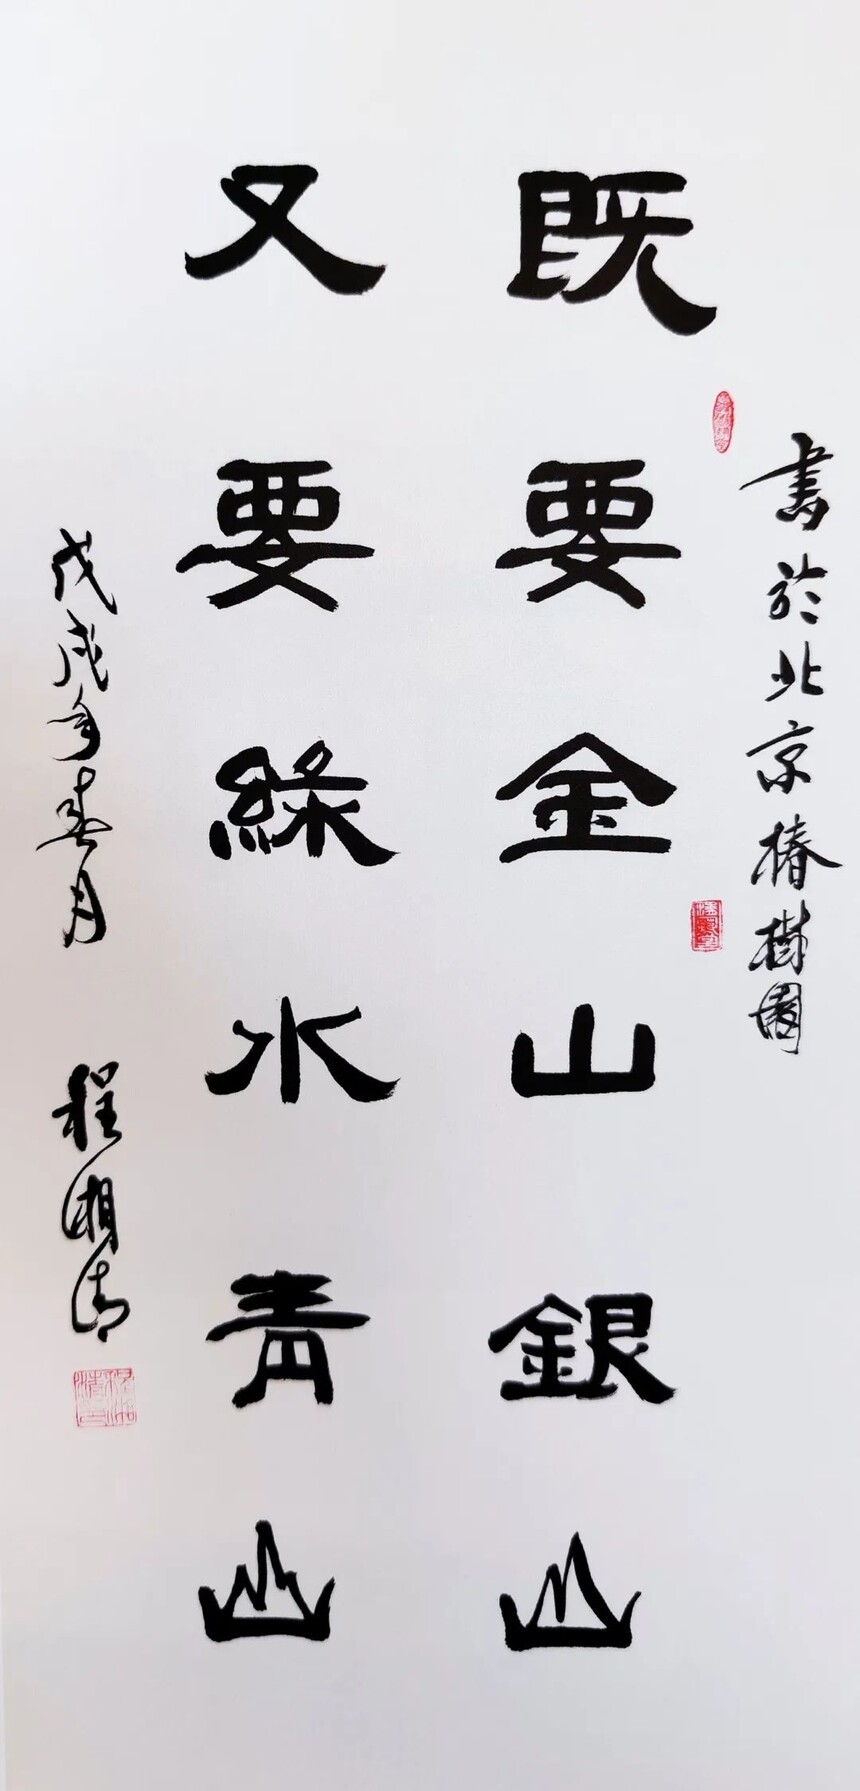 既要金山銀山
又要綠水青山
書於北京椿樹園
戊戌年春月 程湘清